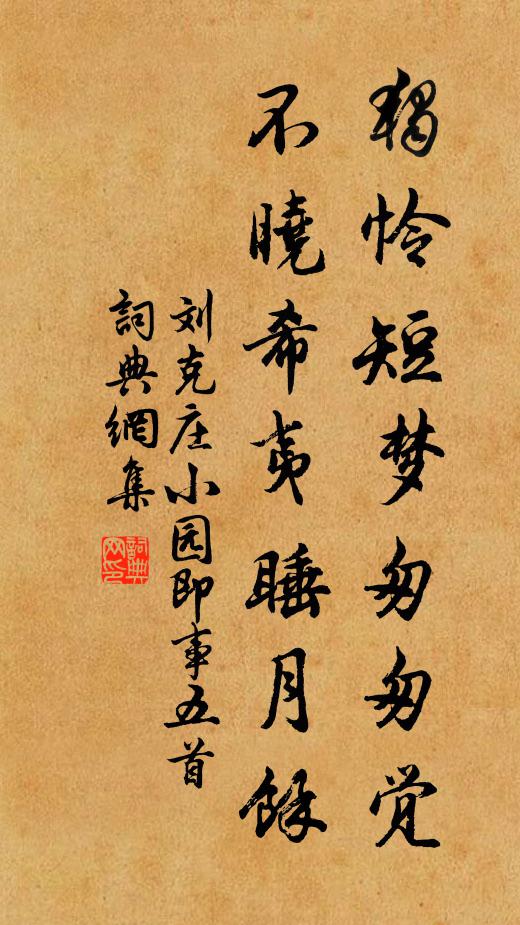 独怜短梦匆匆觉
不曉希夷睡月餘
刘克庄小园即事五首
詞典網集
詞典网印